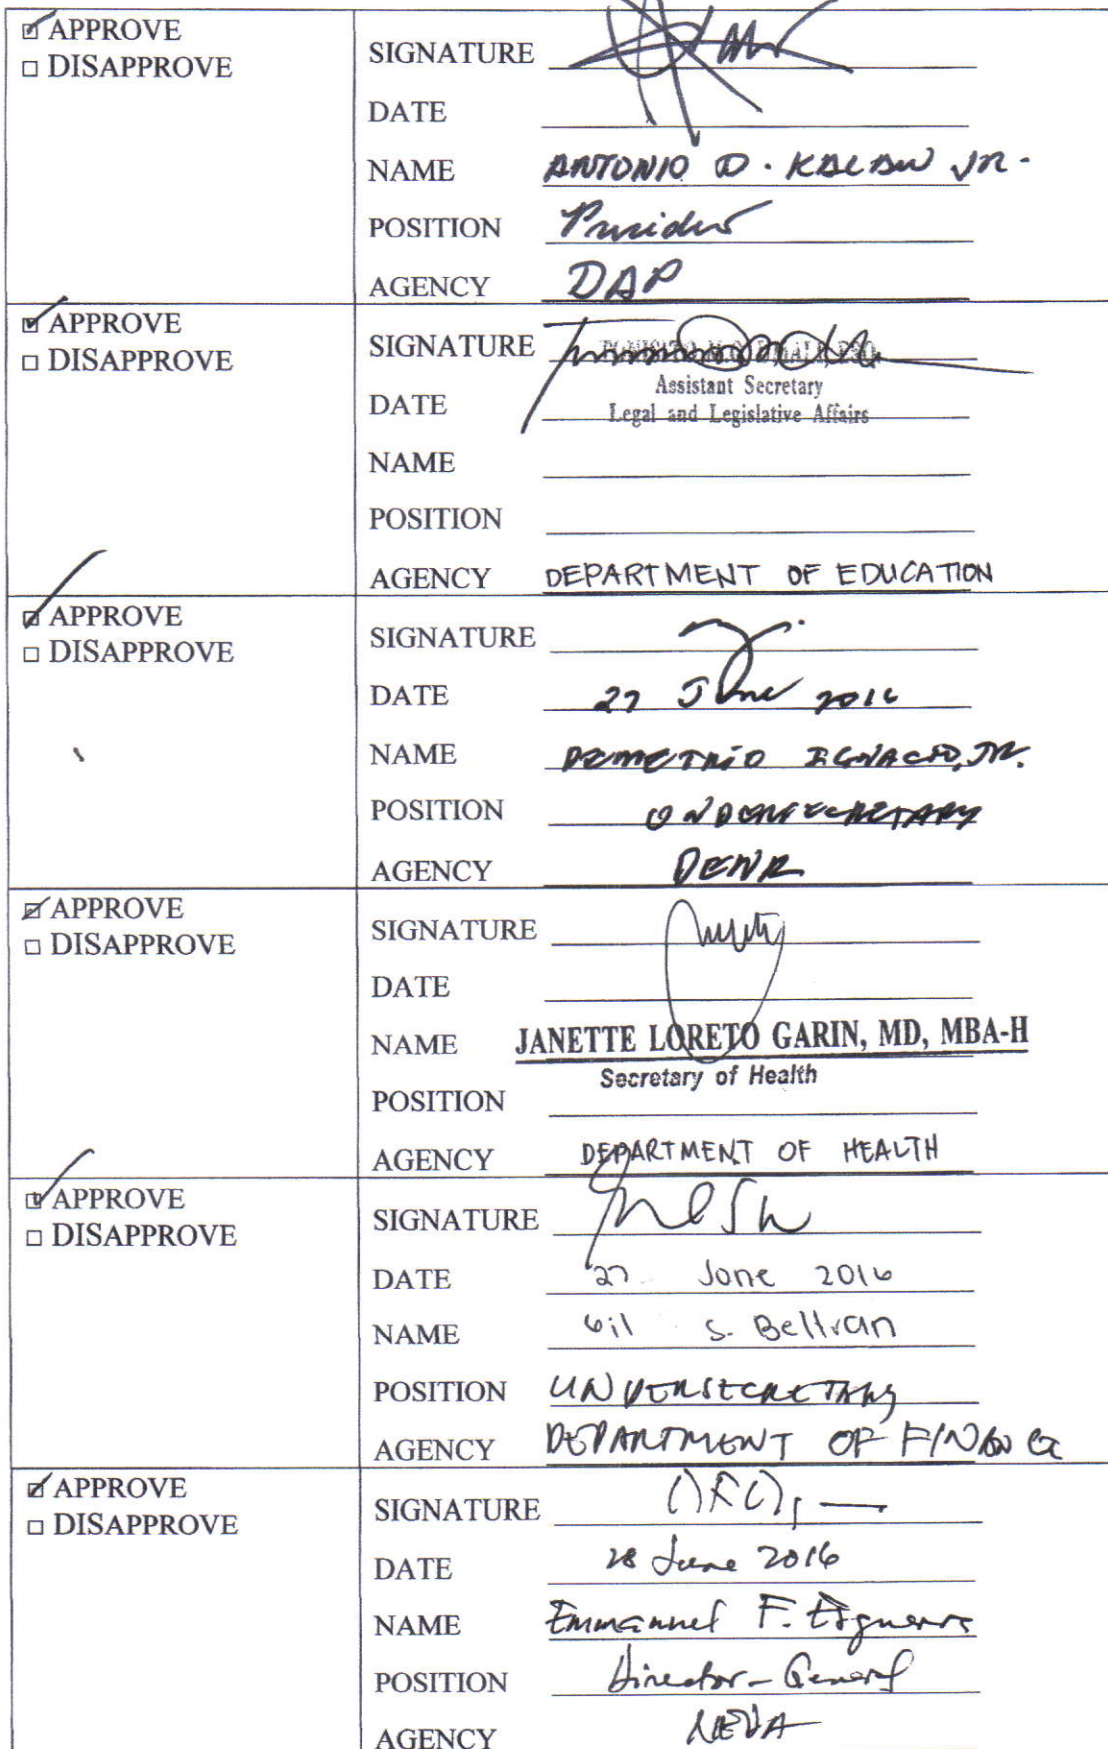 ☑ APPROVE
☐ DISAPPROVE
SIGNATURE
DATE
NAME ANTONIO D. KALAW JR.
POSITION President
AGENCY DAP
☑ APPROVE
☐ DISAPPROVE
SIGNATURE
Assistant Secretary
DATE Legal and Legislative Affairs
NAME
POSITION
AGENCY DEPARTMENT OF EDUCATION
☑ APPROVE
☐ DISAPPROVE
SIGNATURE
DATE 27 June 2016
NAME DEMETRIO IGNACIO, JR.
POSITION UNDERSECRETARY
AGENCY DENR
☑ APPROVE
☐ DISAPPROVE
SIGNATURE
DATE
NAME JANETTE LORETO GARIN, MD, MBA-H
Secretary of Health
POSITION
AGENCY DEPARTMENT OF HEALTH
☑ APPROVE
☐ DISAPPROVE
SIGNATURE
DATE 27 June 2016
NAME Gil S. Beltran
POSITION UNDERSECRETARY
AGENCY DEPARTMENT OF FINANCE
☑ APPROVE
☐ DISAPPROVE
SIGNATURE
DATE 28 June 2016
NAME Emmanuel F. Esguerra
POSITION Director-General
AGENCY NEDA